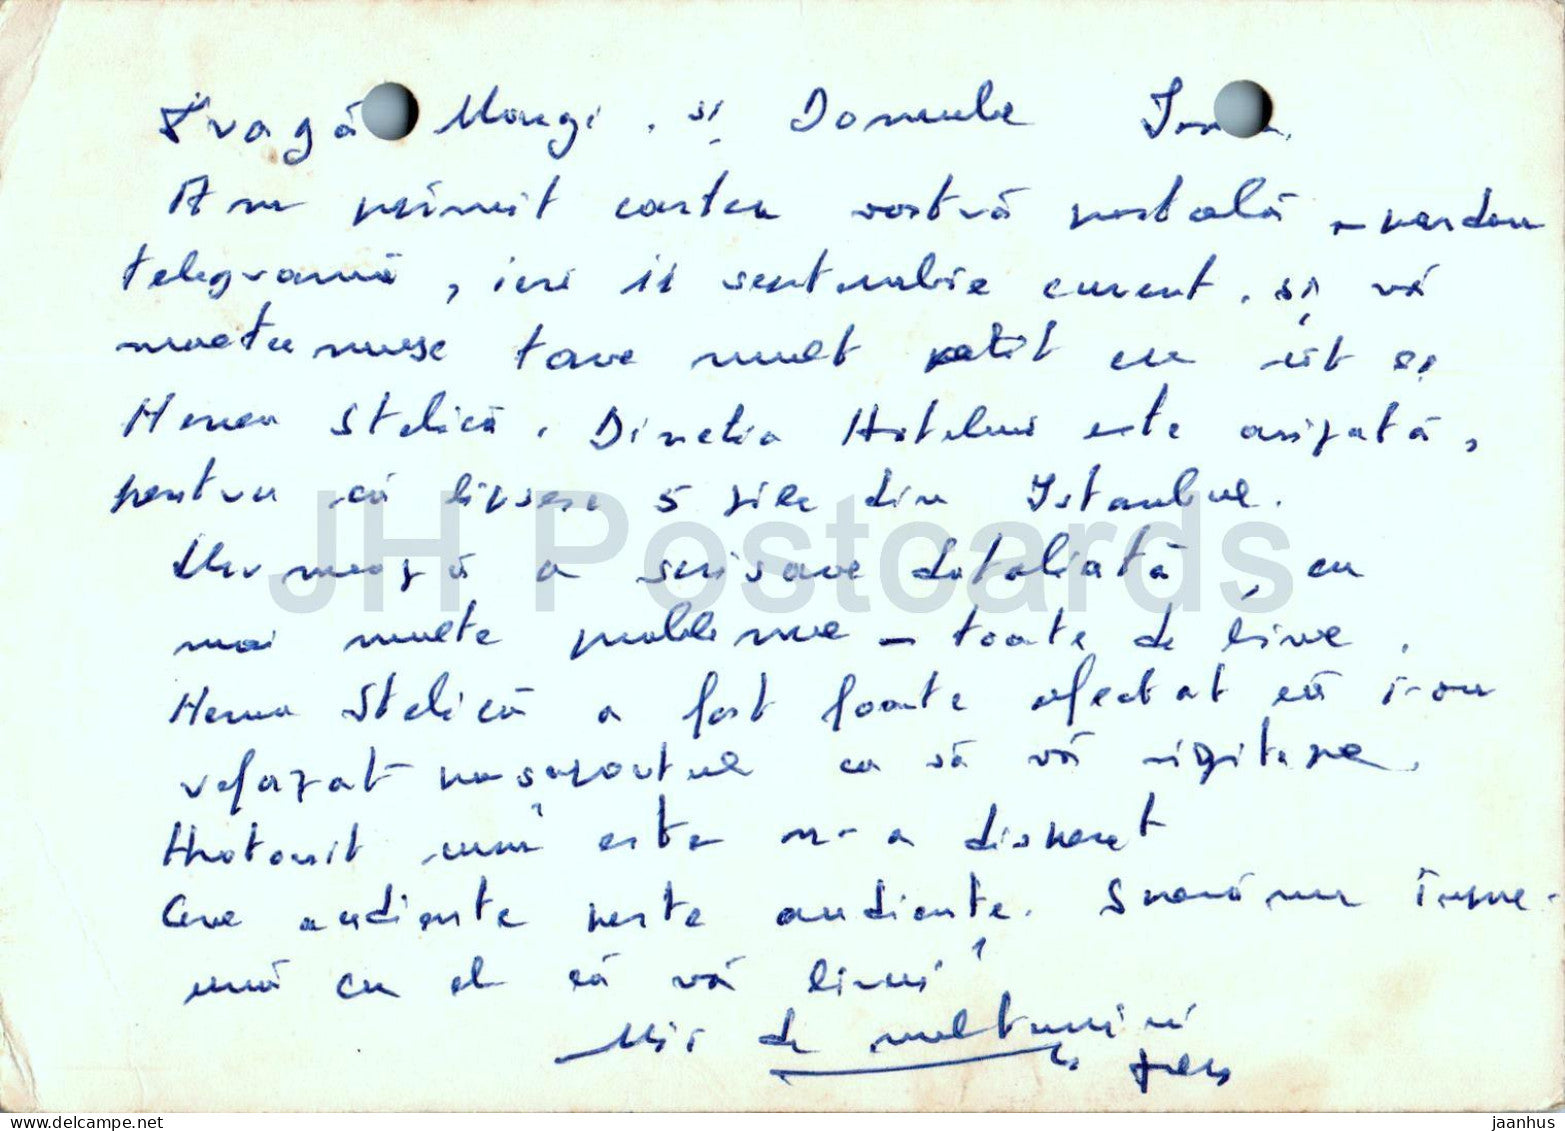 Dragă Mongi, și Domnule
Am primit cartea vostră postală - pardon
telegramă, ieri 11 septembrie curent, și vă
multumesc tare mult atît eu cît și
Nenea Stelică. Direcția Hotelului este avizată,
pentru că lipsesc 5 zile din Istanbul.
Urmează o scrisare detaliată, cu
mai multe probleme - toate de bine.
Nenea Stelică a fost foarte afectat că i-au
refazat pasaportul ca să vă viziteze.
Hotărit cum este n-a disperat
Cere audiente peste audiențe. Sperăm împre-
ună cu el că vă veni
Mii de multumiri
JH Postcards
delcampe.net
jaanhus